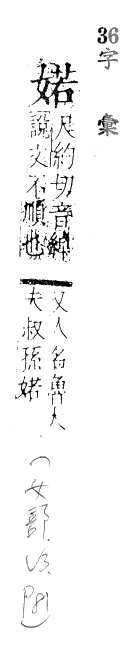 36
字彙
婼
尺約切音綽
說文不順也
又人名魯大
夫叔孫婼
(女部.V3.P81)